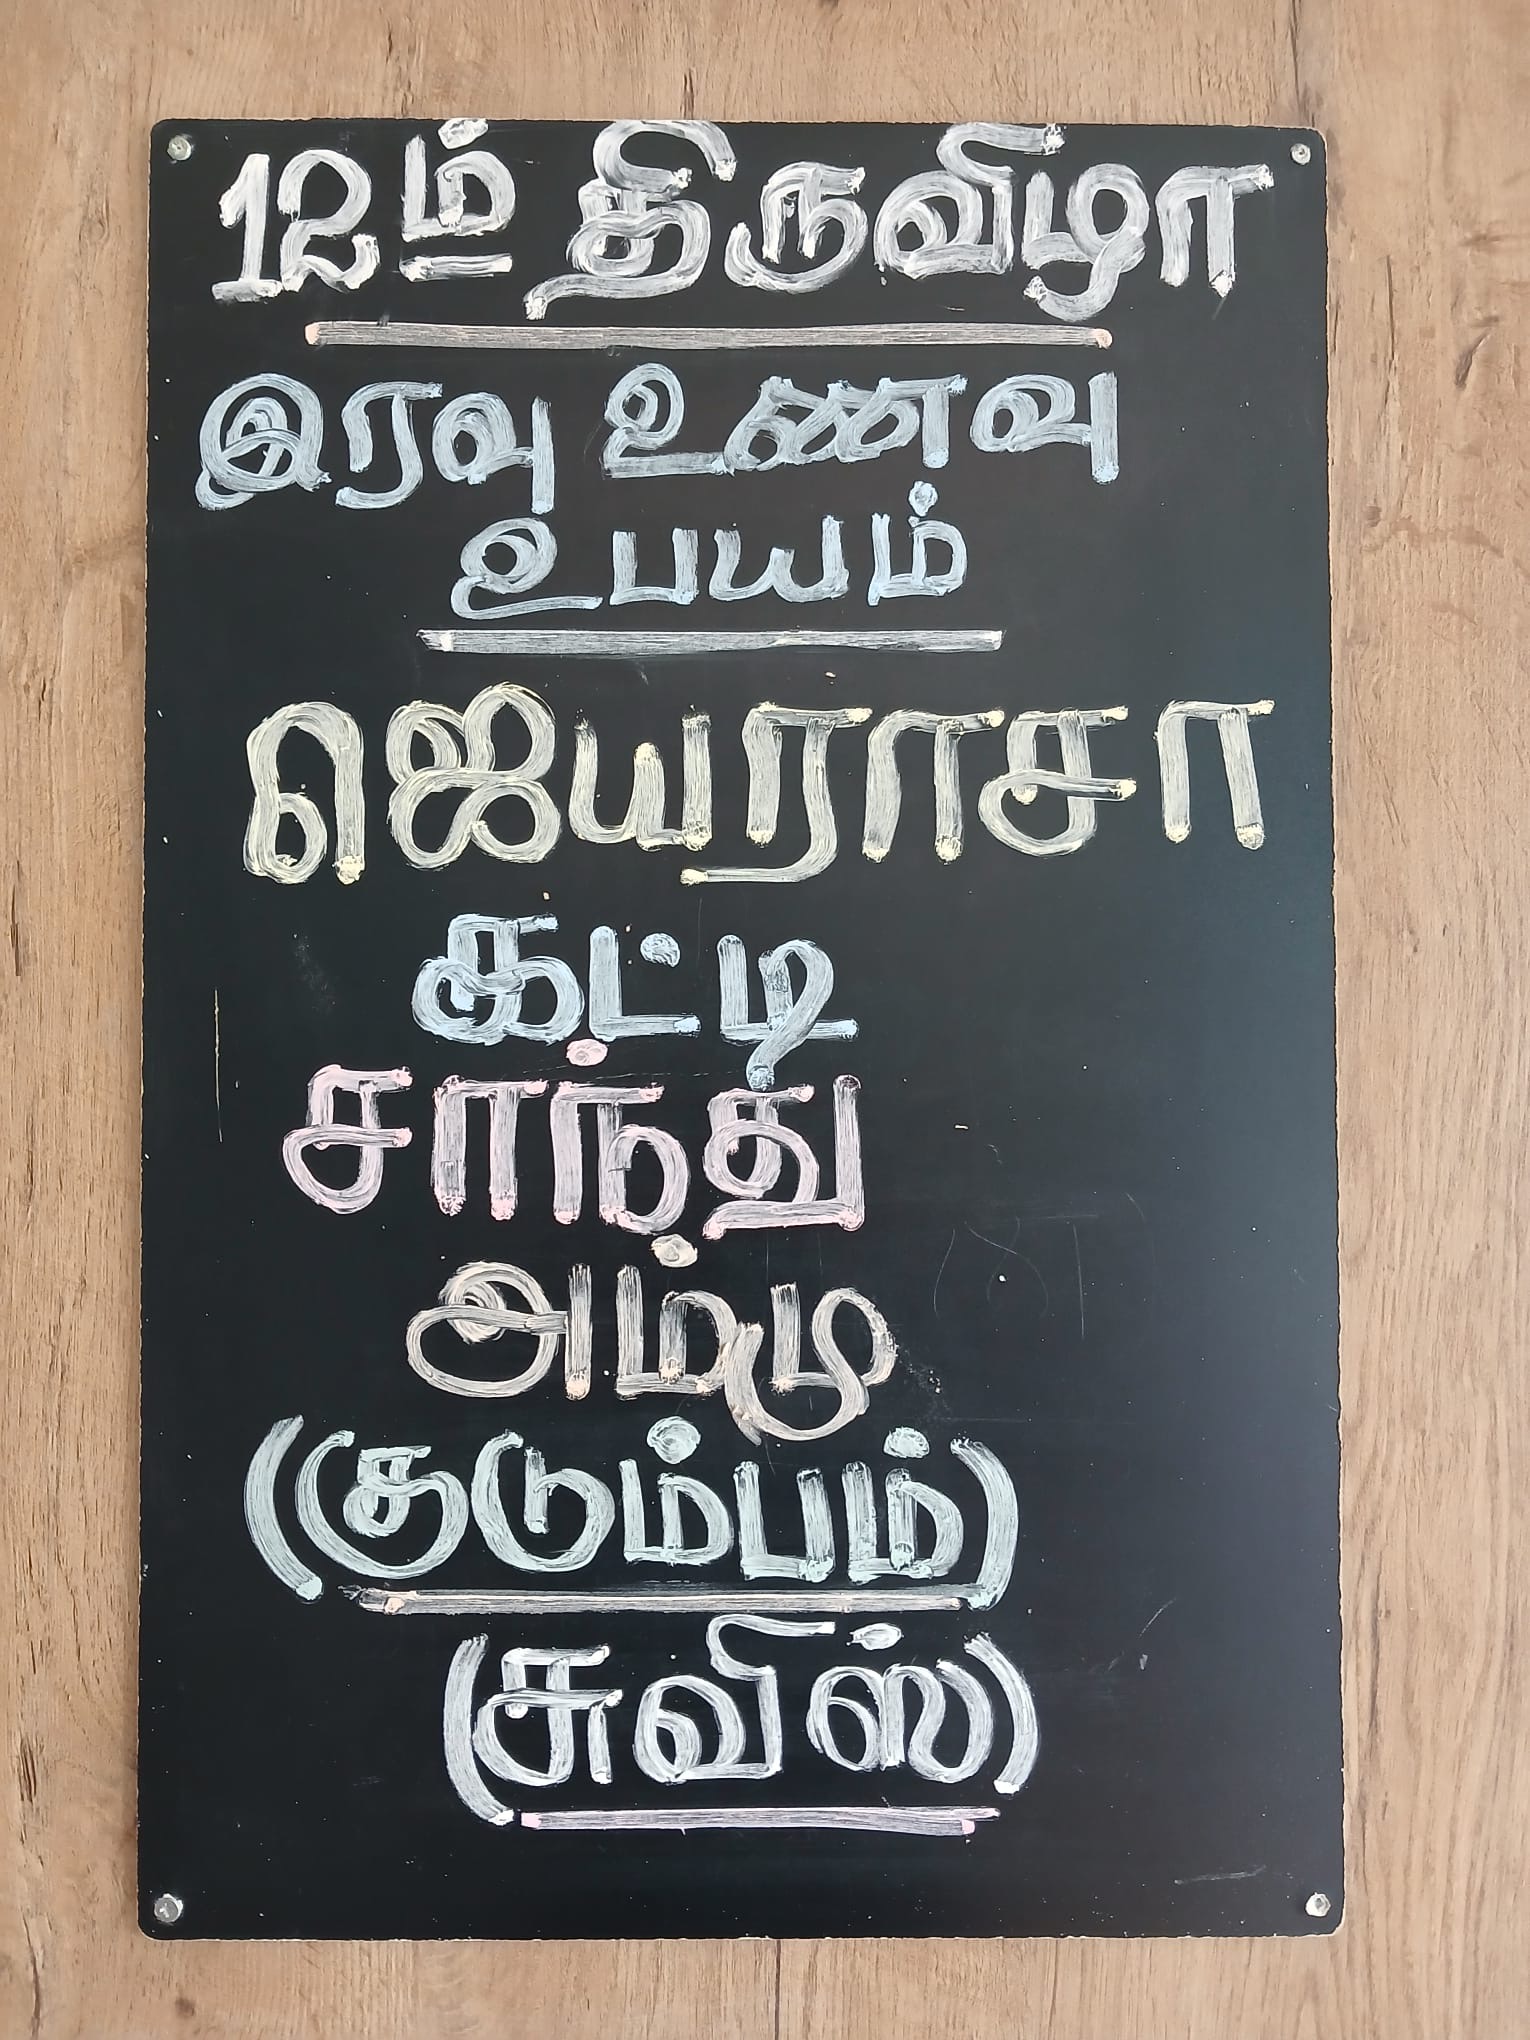 12ம் திருவிழா
இரவு உணவு
உபயம்
ஜெயராசா
கட்டி
சாந்து
அம்மு
(குடும்பம்)
(சுவிஸ்)